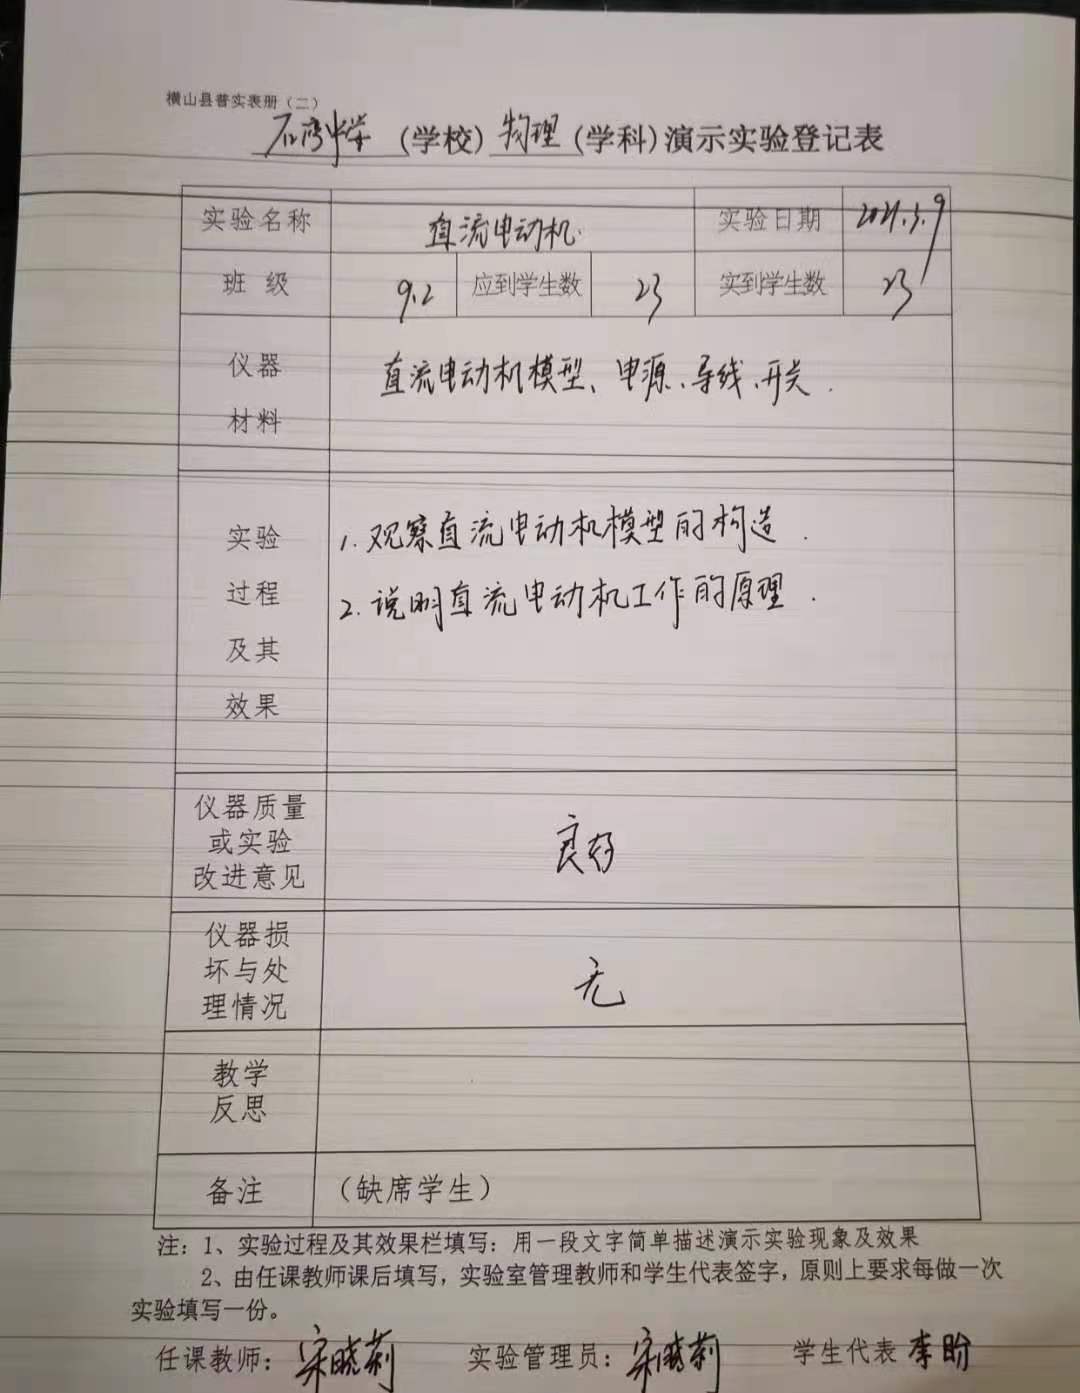 横山县普实表册（二）
石湾中学（学校）物理（学科）演示实验登记表
实验名称 直流电动机 实验日期 2021.3.9
班 级 9.2 应到学生数 23 实到学生数 23
仪器
材料
直流电动机模型、电源、导线、开关.
实验
过程
及其
效果
1.观察直流电动机模型的构造.
2.说明直流电动机工作的原理.
仪器质量
或实验
改进意见
良好
仪器损
坏与处
理情况
无
教学
反思
备注 （缺席学生）
注：1、实验过程及其效果栏填写：用一段文字简单描述演示实验现象及效果
2、由任课教师课后填写，实验室管理教师和学生代表签字，原则上要求每做一次
实验填写一份。
任课教师：宋晓莉 实验管理员：宋晓莉 学生代表 李盼